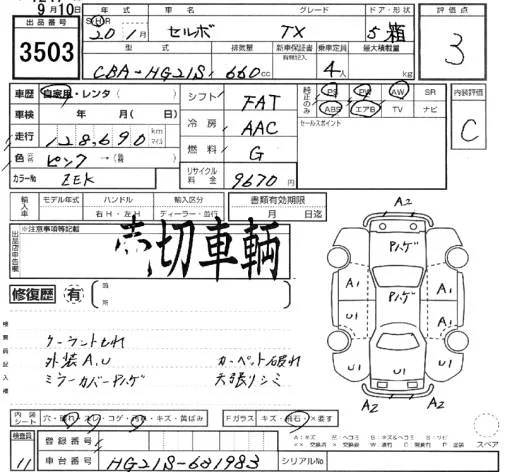 9月10日
出品番号
3503
年式 車名 グレード ドア・形状
S H R 20年 1月 セルボ TX 5 箱
型式 排気量 新車保証書 有無記入 乗車定員 最大積載量
CBA-HG21S 660cc 4人 kg
評価点
3
車歴 自家用・レンタ( )
車検 年 月( 日)
走行 128,690 km マイル
色 ピンク→( )
カラーNo ZEK
シフト FAT
冷房 AAC
燃料 G
リサイクル料金 9670円
純正のみ PS PW AW SR
ABS エアB TV ナビ
セールスポイント
内装評価
C
輸入車 モデル年式 ハンドル 輸入区分
右H・左H ディーラー・並行
書類有効期限
月 日迄
出品店申告欄 ※注意事項等記載
売切車輌
修復歴 有 箇所
検査員記入欄
クーラント もれ
外装A,U カーペット破れ
ミラーカバーPハゲ 天張りシミ
A2
Pハゲ
Pハゲ
A1 A1
U1 U1
A2 A2
内装シート 穴・破れ・スレ・コゲ・汚れ・キズ・黄ばみ
Fガラス キズ・飛石・×要す
スペア
検査員 11
登録番号
車台番号 HG21S-631983 シリアルNo